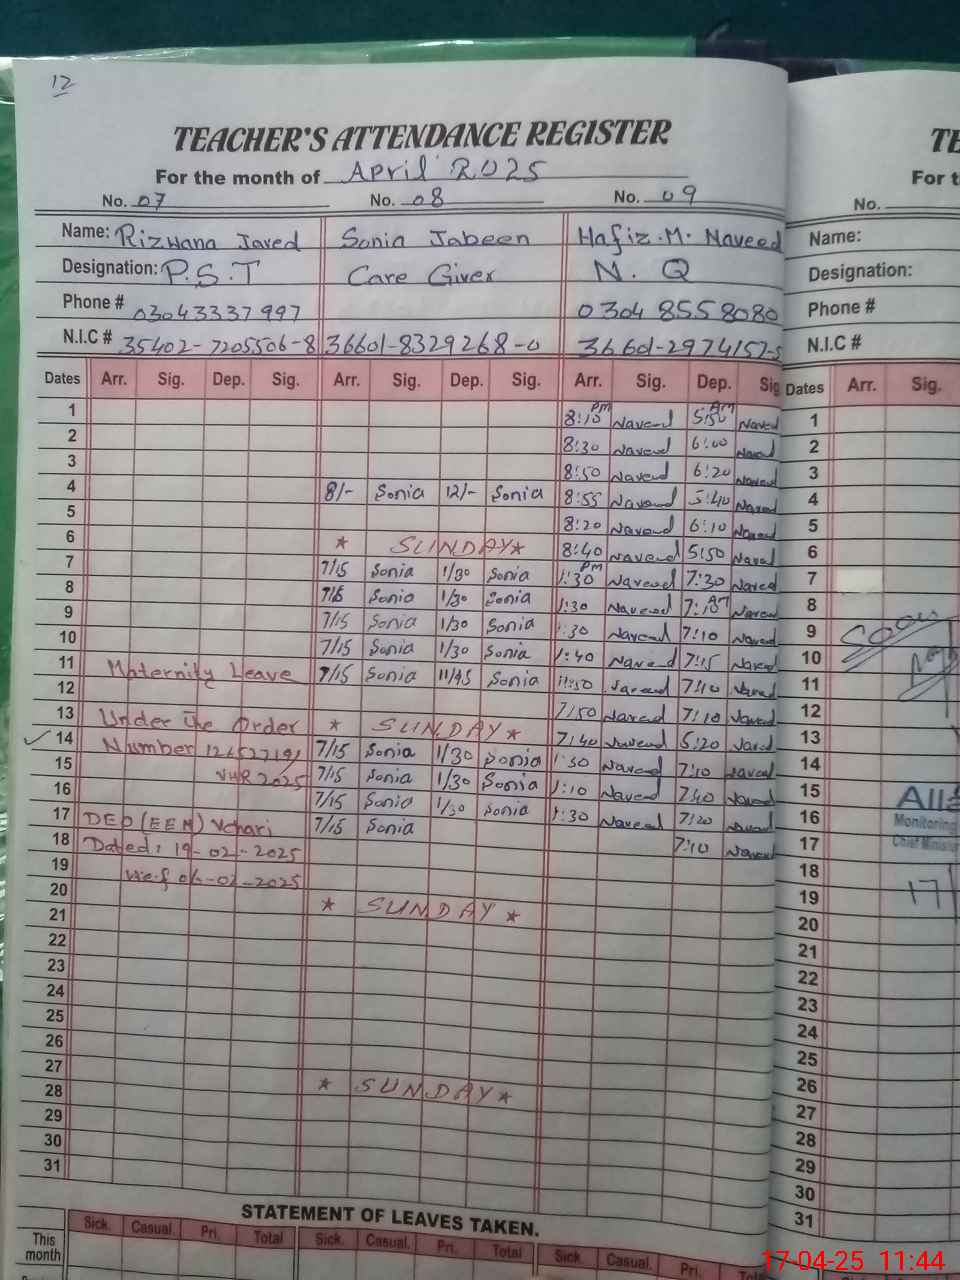 12
TEACHER'S ATTENDANCE REGISTER
For the month of April 2025
No. 07 No. 08 No. 09
Name: Rizwana Javed Sonia Jabeen Hafiz.M. Naveed
Designation: P.S.T Care Giver N. Q
Phone # 03043337997 0304 8558080
N.I.C # 35402-7205506-8 36601-8329268-0 36601-2974157-5
Dates Arr. Sig. Dep. Sig. Arr. Sig. Dep. Sig. Arr. Sig. Dep. Sig
1 8:10 PM Naveed 5:50 AM Naveed
2 8:30 Naveed 6:00 Naveed
3 8:50 Naveed 6:20 Naveed
4 8/- Sonia 12/- Sonia 8:55 Naveed 5:40 Naveed
5 8:20 Naveed 6:10 Naveed
6 * SUNDAY * 8:40 Naveed 5:50 Naveed
7 7/15 Sonia 1/30 Sonia 1:30 PM Naveed 7:30 Naveed
8 7/15 Sonia 1/30 Sonia 1:30 Naveed 7:10 AM Naveed
9 7/15 Sonia 1/30 Sonia 1:30 Naveed 7:10 Naveed
10 7/15 Sonia 1/30 Sonia 1:40 Naveed 7:15 Naveed
11 Maternity Leave 7/15 Sonia 11/45 Sonia 11:50 Naveed 7:10 Naveed
12 7/50 Naveed 7:10 Naveed
13 Under the Order * SUNDAY * 7:40 Naveed 5:20 Naveed
14 Number 7/15 Sonia 1/30 Sonia 1:30 Naveed 7:10 Naveed
15 2025 7/15 Sonia 1/30 Sonia 1:10 Naveed 7:40 Naveed
16 7/15 Sonia 1/30 Sonia 1:30 Naveed 7:20 Naveed
17 DEO (EEM) Vehari 7/15 Sonia 7:10 Naveed
18 Dated: 19-02-2025
19 w.e.f 06-02-2025
20 * SUNDAY *
21
22
23
24
25
26
27 * SUNDAY *
28
29
30
31
STATEMENT OF LEAVES TAKEN.
Sick. Casual. Pri. Total Sick. Casual. Pri. Total Sick. Casual. Pri. Total
This
month
TE
For t
No.
Name:
Designation:
Phone #
N.I.C #
Dates Arr. Sig.
1
2
3
4
5
6
7
8
9
10
11
12
13
14
15
16 Monitoring
17 Chief Minister
18
19 17
20
21
22
23
24
25
26
27
28
29
30
31
17-04-25 11:44